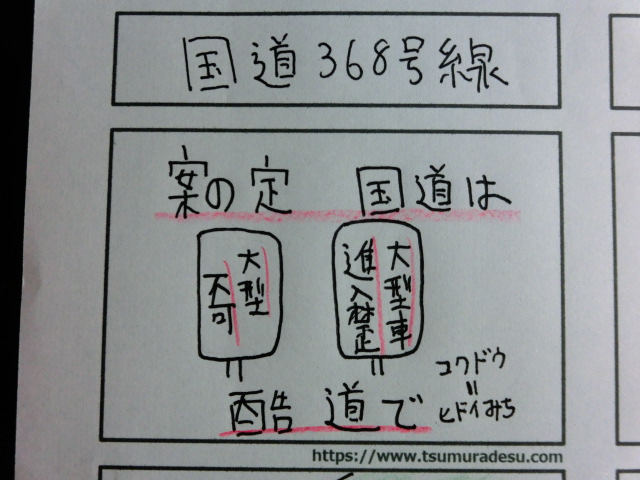 国道368号線
案の定 国道は
大型
不可
大型車
進入禁止
コクドウ
=
ヒドイみち
酷道で
https://www.tsumuradesu.com